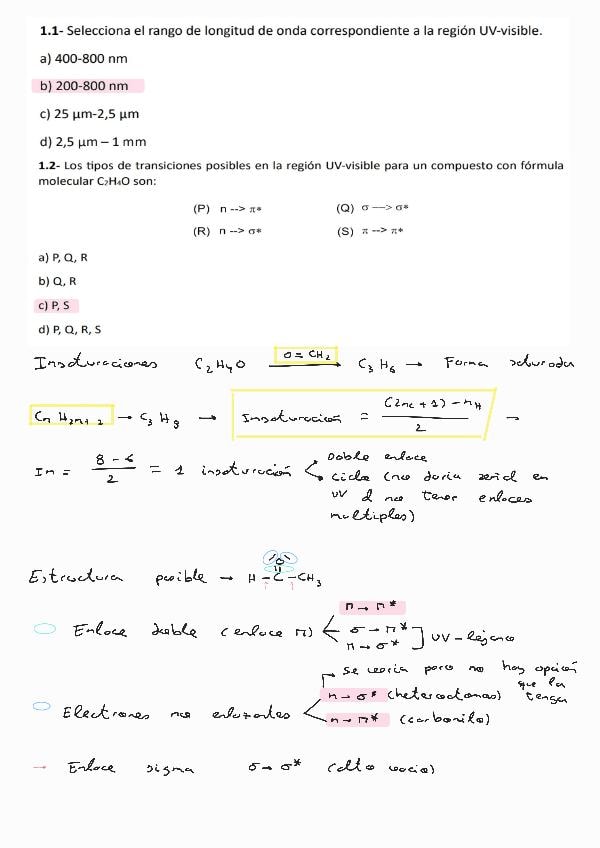 1.1- Selecciona el rango de longitud de onda correspondiente a la región UV-visible.
a) 400-800 nm
b) 200-800 nm
c) 25 μm-2,5 μm
d) 2,5 μm – 1 mm
1.2- Los tipos de transiciones posibles en la región UV-visible para un compuesto con fórmula
molecular C₂H₄O son:
(P) n --> π* (Q) σ —> σ*
(R) n --> σ* (S) π --> π*
a) P, Q, R
b) Q, R
c) P, S
d) P, Q, R, S
O = CH₂
Insaturaciones C₂H₄O → C₃H₆ → Forma saturada
CnH2n+2 → C₃H₈ → Insaturación = (2nc + 2) - nH / 2 →
In = 8 - 6 / 2 = 1 insaturación
Doble enlace
Ciclo (no daría señal en
UV al no tener enlaces
multiples)
Estructura posible → H - C - CH₃
O
π → π*
Enlace doble (enlace π) σ → π* ] UV - lejano
π → σ*
se vería pero no hay opción
que la
tenga
Electrones no enlazantes n → σ* (heteroátomos)
n → π* (carbonilo)
→ Enlace sigma σ → σ* (alto vacío)